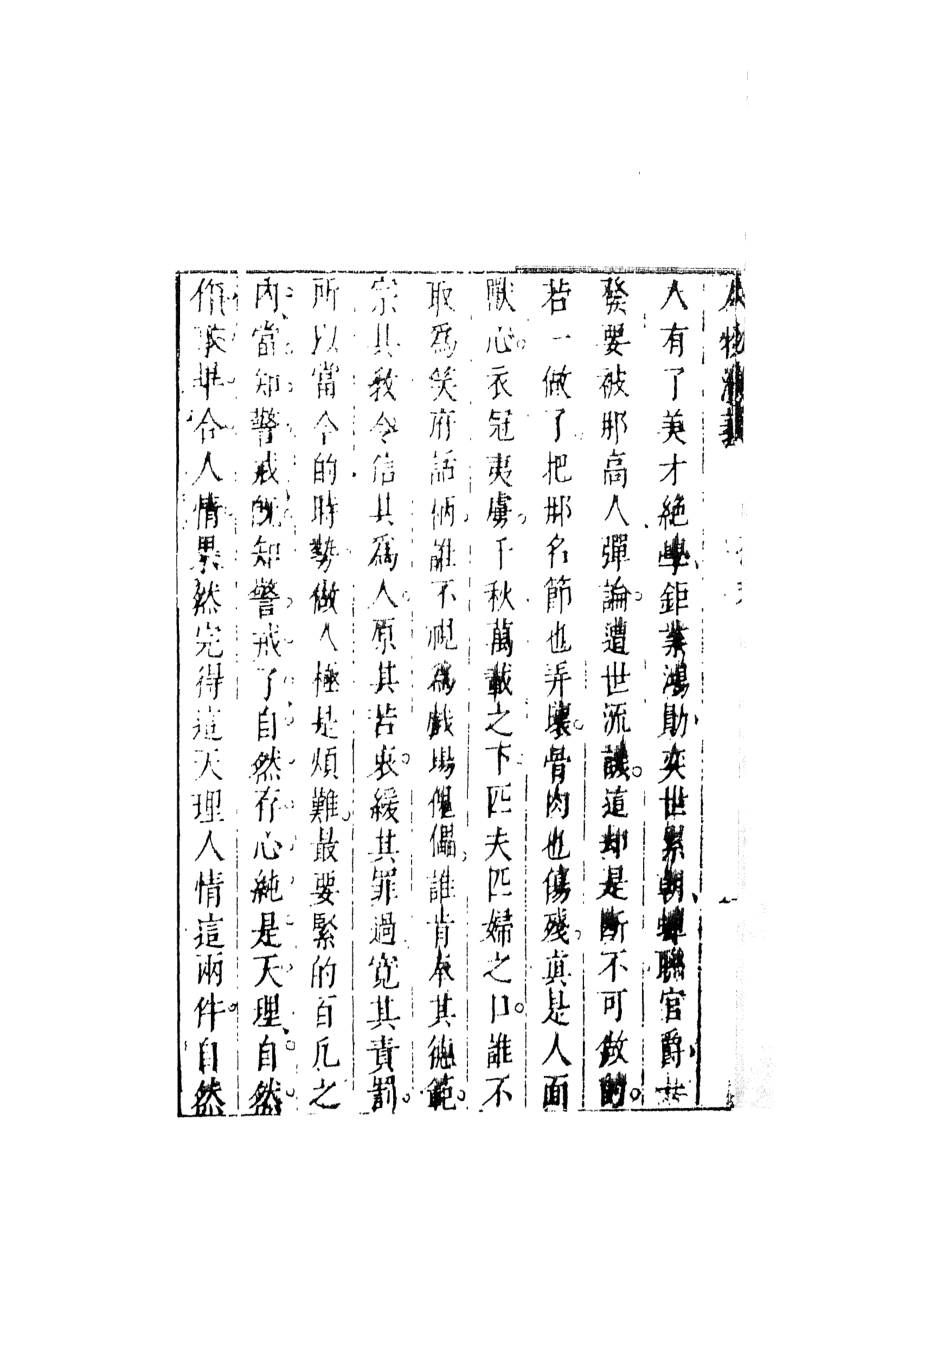 人物演義
人有了美才絕學鉅業鴻勛奕世累朝蟬聯官爵
發要被那高人彈論遭世流譏這却是斷不可做的
若一做了把那名節也弄壞骨肉也傷殘真是人面
獸心衣冠夷虜千秋萬載之下匹夫匹婦之口誰不
取為笑府話柄誰不視為戲場傀儡誰肯奉其德範
宗其教令信其為人原其苦衷緩其罪過寬其責罰
所以當今的時勢做人極是煩難最要緊的百凡之
內當知警戒旣知警戒了自然存心純是天理自然
作事毕合人情果然完得這天理人情這兩件自然